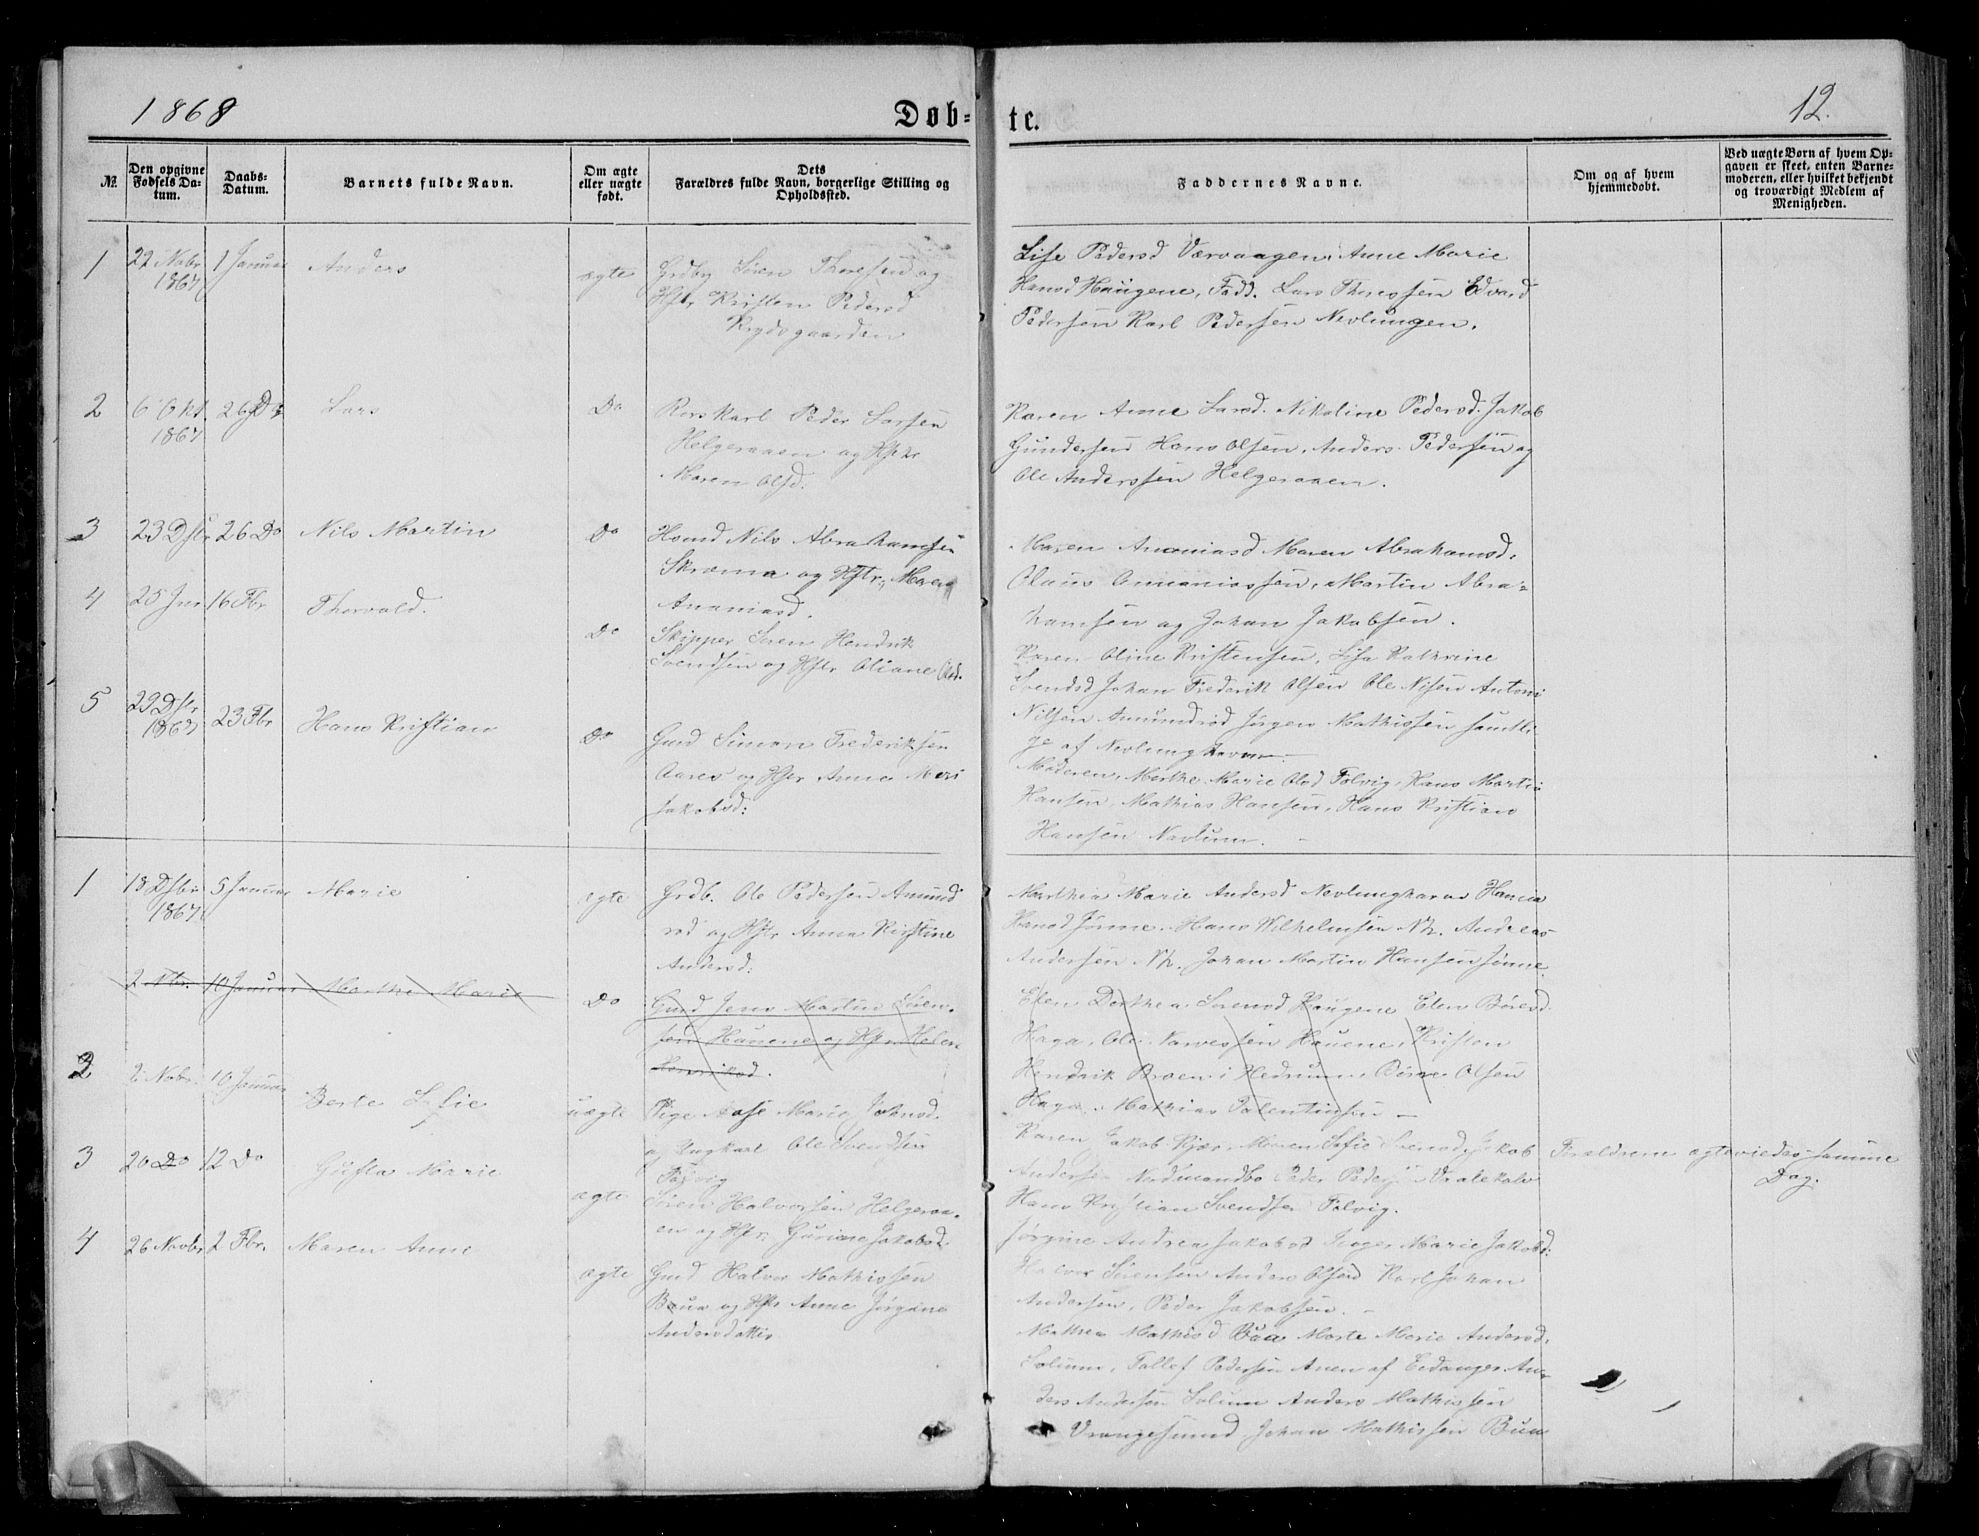 1868
Døb-
te.
12.
№
Den opgivne Fødsels Da-tum.
Daabs-Datum.
Barnets fulde Navn.
Om ægte eller uægte født.
Dets Forældres fulde Navn, borgerlige Stilling og Opholdssted.
Faddernes Navne.
Om og af hvem hjemmedøbt.
Ved uægte Børn af hvem Op-gaven er skeet, enten Barne-moderen, eller hvilket bekjendt og troværdigt Medlem af Menigheden.
1
22 Nobr
1867
1 Januar
Anders
ægte
Grdbr Søren Thoresen og
Hstr Kristen Pedersd
Rydsgaarden
Lise Pedersd Værvaagen, Anne Marie
Hansd Haugene, Fadd. Lars Thoresen Edvard
Pedersen Karl Pedersen Nevlungen.
2
6 Okt
1867
26 Do
Lars
Do
Karl Peder Larsen
Helgeraaen og Hstr
Maren Olsd.
Karen Anne Larsd. Nikoline Pedersd. Jakob
Gundersen Hans Olsen, Anders Pedersen og
Ole Anderssen Helgeraaen.
3
23 Dsbr
26 Do
Nils Martin
Do
Husmd Nils Abrahamsen
Skræma og Hstr. Maren
Ananiasd.
Maren Ananiasd Maren Abrahamsd.
Olaus Annaniassen, Martin Abra-
hamsen og Johan Jakobsen.
4
25 Jnr
16 Fbr
Thorvald.
Do
Skipper Søren Hendrik
Svendsen og Hstr Oliane Olsd.
Karen Oline Kristensen, Lisa Kathrine
Svendsd Johan Frederik Olsen Ole Nilsen Antoni
Nilsen Amundrød Jørgen Mathissen samtli-
ge af Nevlunghavn
5
29 Dsbr
1867
23 Fbr
Hans Kristian
Do
Gmd Simon Frederiksen
Aares og Hstr Anne Mari
Jakobsd:
Moderen, Marthe Marie Olsd Folvig, Hans Martin
Hansen, Mathias Hansen, Hans Kristian
Hansen Navlum.
1
18 Dsbr
1867
5 Januar
Marie
ægte
Grdb. Ole Pedersen Amund
rød og Hstr Anna Kristine
Andersd:
Marthea Marie Andersd Nevlunghavn Hanna
Hansd Jønne. Hans Wilhelmsen Nh. Andreas
Andersen Nh. Johan Martin Hansen Jønne
2 Nbr.
10 Januar
Marthe Marie
Do
Gmd Jens Martin Søren-
sen Hauene og Hstr Helene
Henriksd.
Elen Dorthea Sørensd Haugene Elen Børesd
Haga, Ole Narvessen Hauene, Kristen
Hendrik Braen i Hedrum, Børre Olsen
Haga. Mathias Valentinsen
2
2 Nobr.
10 Januar
Berte Sofie
uægte
Pige Aase Marie Johnsd.
og Ungkarl Ole Svendsen
Folvig
Karen Jakob. Kjær, Maren Sofie Svensd. Jakob
Andersen Nordmandbo Peder Peders. Vralekolv
Hans Kristian Svendsen Folvig.
Forældrene ægteviedes samme
Dag.
3
20 Do
12 Do
Gusta Marie
ægte
Søren Halvorsen Helgeraa-
en og Hstr. Guriane Jakobsd
Jørgine Andrea Jakobsd Inger Marie Jakobsd:
Halvor Sørensen Anders Olsen Karl Johan
Andersen, Peder Jakobsen.
4
26 Novbr
2 Fbr.
Maren Anne
ægte
Gmd Halvor Mathissen
Bua og Hstr Anne Jørgine
Andersdatter
Mathea Mathisd Bua Marte Marie Andersd.
Solum, Tallef Pedersen Anen af Eidanger An-
ders Andersen Solum Anders Mathissen
Vrangesund Johan Mathissen Bua